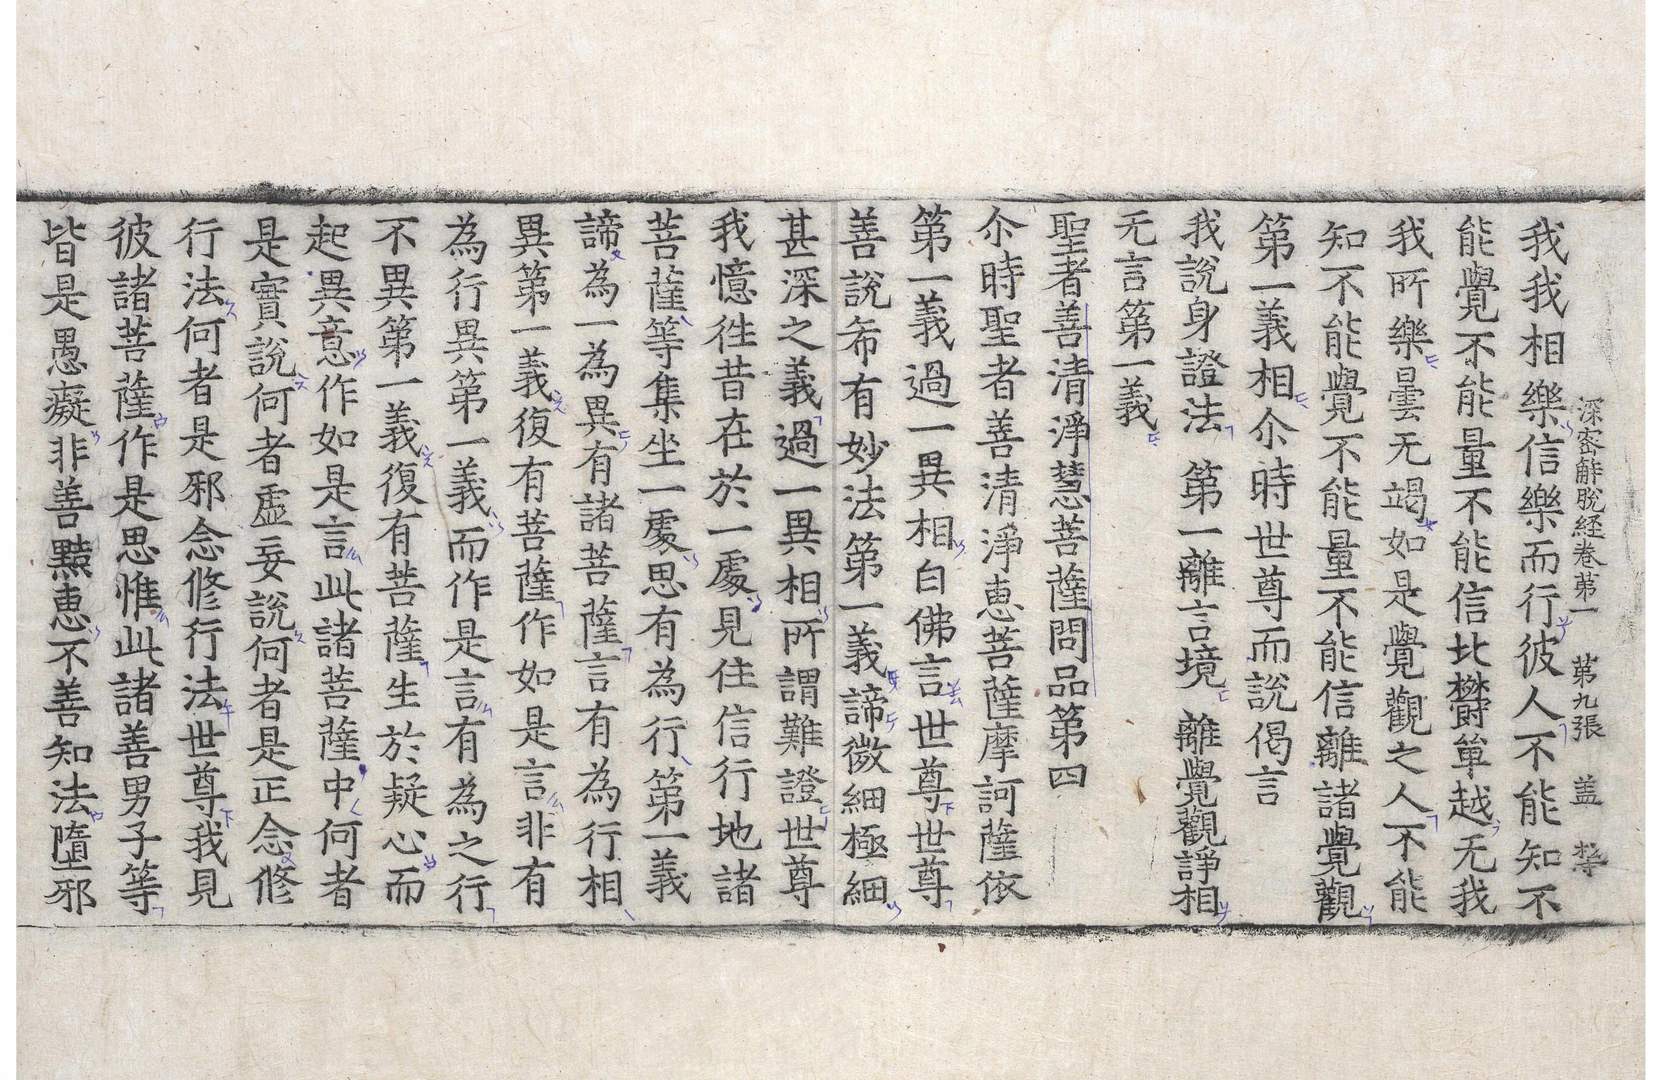 深密解脫経卷第一 第九張 盖 
我我相樂信樂而行彼人不能知不
能覺不能量不能信北欝單越无我
我所樂曇无竭如是覺觀之人不能
知不能覺不能量不能信離諸覺觀
第一義相尒時世尊而說偈言
我說身證法 第一離言境 離覺觀諍相
无言第一義
聖者善清淨慧菩薩問品第四
尒時聖者善清淨恵菩薩摩訶薩依
第一義過一異相白佛言世尊世尊
善說希有妙法第一義諦微細極細
甚深之義過一異相所謂難證世尊
我憶徃昔在於一處見住信行地諸
菩薩等集坐一處思有為行第一義
諦為一為異有諸菩薩言有為行相
異第一義復有菩薩作如是言非有
為行異第一義而作是言有為之行
不異第一義復有菩薩生於疑心而
起異意作如是言此諸菩薩中何者
是實說何者虛妄說何者是正念修
行法何者是邪念修行法世尊我見
彼諸菩薩作是思惟此諸善男子等
皆是愚癡非善黠恵不善知法墮邪